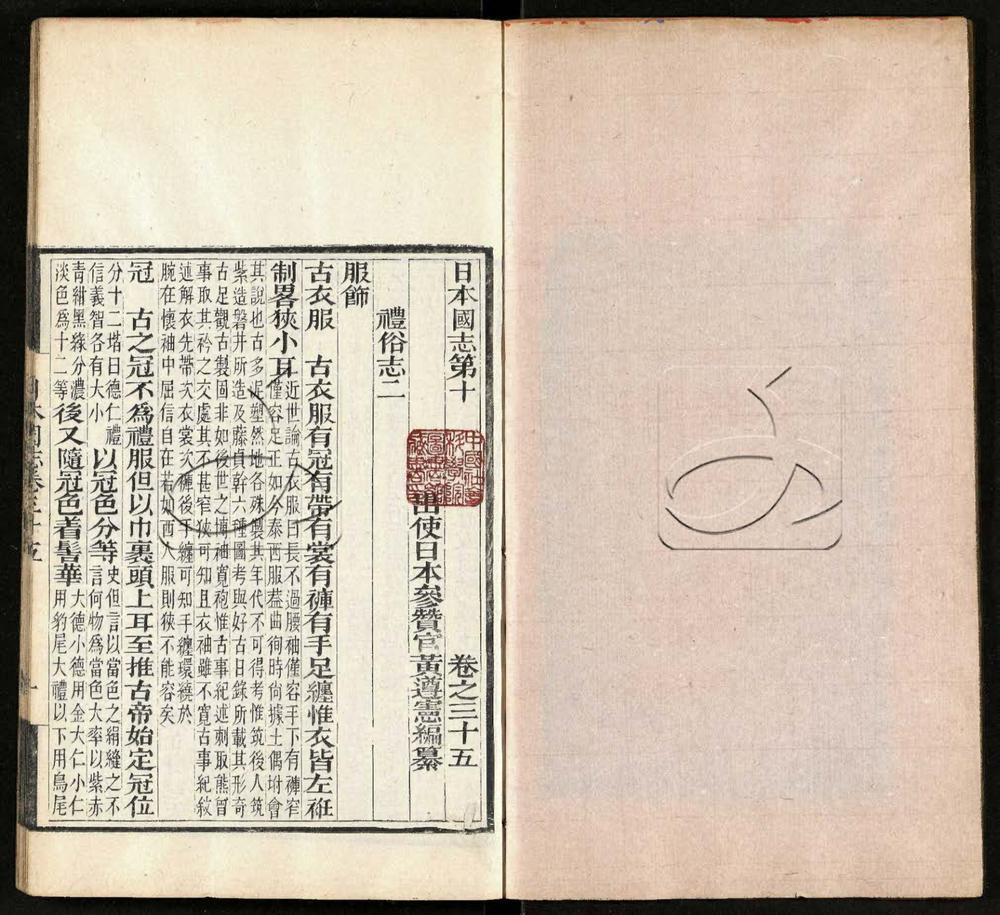 日本國志第十　卷之三十五
出使日本參贊官黃遵憲編纂
禮俗志二
服飾
古衣服　古衣服有冠有帶有裳有褲有手足纏惟衣皆左袵
制畧狹小耳近世論古衣服曰長不過腰袖僅容手下有褲窄
僅容足正如今泰西服葢曲徇時尙據土偶坿會
其說也古多泥塑然地各殊製其年代不可得考惟筑後人筑
紫造磐井所造及藤貞幹六種圖考與好古日錄所載其形奇
古足觀古製固非如後世之博袖寬袍惟古事紀述刺取熊習
事取其衿之交處其不甚窄狹可知且衣袖雖不寬古事紀敘
述解衣先帶次衣裳次褲後手纏可知手纏環繞於
腕在懷袖中屈信自在若如西人服則狹不能容矣
冠　古之冠不爲禮服但以巾裹頭上耳至推古帝始定冠位
分十二塔曰德仁禮
信義智各有大小　以冠色分等史但言以當色之絹縫之不
言何物爲當色大率以紫赤
靑紺黑綠分濃
淡色爲十二等後又隨冠色着髻華大德小德用金大仁小仁
用豹尾大禮以下用鳥尾
日本國志卷三十五
一